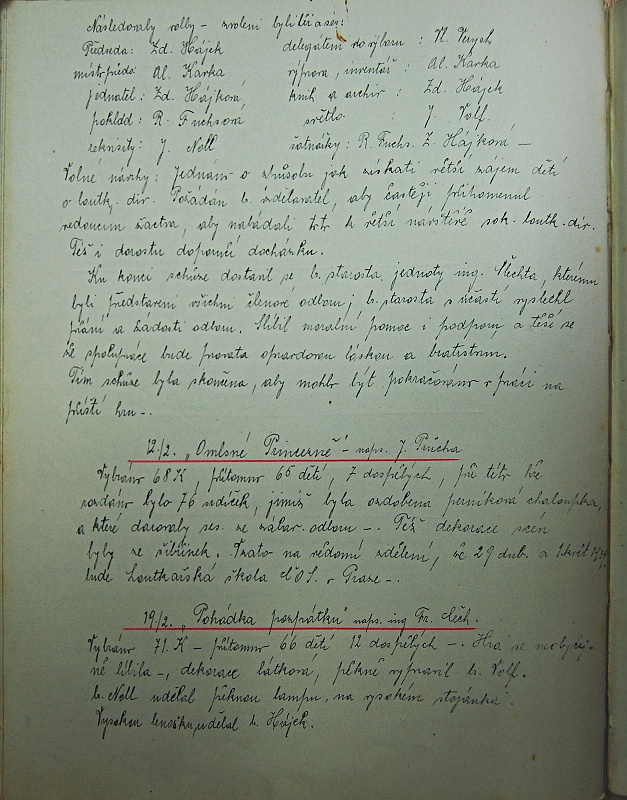 Následovaly volby – zvoleni byli tito a ses:
Předseda: Zd. Hájek delegátem do výboru: Vl. Verych
místopředs: Al. Karka výprava, inventář: Al. Karka
jednatel: Zd. Hájková knih. a archiv: Zd. Hájek
poklad: R. Fuchsová světlo: J. Volf.
rekvisity: J. Noll šatnářky: R. Fuchs. Z. Hájková –
Volné návrhy: Jednáno o způsobu jak získati větší zájem dětí
o loutk. div. Požádán b. vzdělavatel, aby častěji připomenul
vedoucím žactva, aby nabádali tyto k větší návštěvě sok. loutk. div.
Též i dorostu doporučí docházku.
Ku konci schůze dostavil se b. starosta jednoty ing. Šlechta, kterému
byli představeni všichni členové odboru; b. starosta s účastí vyslechl
přání a žádosti odboru. Slíbil morální pomoc i podporu a těší se
že spolupráce bude provata opravdovou láskou a bratrstvím.
Tím schůze byla skončena, aby mohlo být pokračováno v práci na
příští hru –.
12./2. „Omlsné Princezně" – naps. J. Průcha
Vybráno 68 K, přítomno 65 dětí, 7 dospělých, při této hře
rozdáno bylo 76 srdíček, jimiž byla ozdobena perníková chaloupka,
a které darovaly ses. ze zábav. odboru –. Též dekorace scén
byly ze šibřinek. Vzato na vědomí sdělení, že 29 dub. a 1 květ
bude Loutkářská škola ČOS. v Praze –.
19./2. „Pohádka pozpátku" naps. ing Fr. Čech.
Vybráno 71. K – přítomno 66 dětí 12 dospělých –. Hra se neobyčej-
ně líbila –, dekorace látková, pěkně vypravil b. Volf.
b. Noll udělal pěknou lampu „na vysokém stojánku".
Vysokou lenošku udělal b. Hájek.